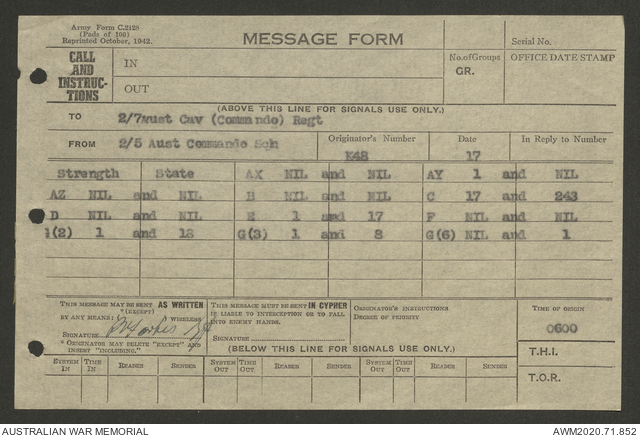 Army Form C.2129
(Pads of 100)
Reprinted October, 1942.
MESSAGE FORM
Serial No.
CALL AND INSTRUC-TIONS
IN
OUT
No. of Groups
GR.
OFFICE DATE STAMP
(ABOVE THIS LINE FOR SIGNALS USE ONLY.)
TO 2/7 Aust Cav (Commando) Regt
FROM 2/5 Aust Commando Sqn
Originator's Number K48
Date 17
In Reply to Number
Strength State AX NIL and NIL AY 1 and NIL
AZ NIL and NIL B NIL and NIL C 17 and 243
D NIL and NIL E 1 and 17 F NIL and NIL
(2) 1 and 18 G(3) 1 and 8 G(6) NIL and 1
THIS MESSAGE MAY BE SENT AS WRITTEN
BY ANY MEANS: *(EXCEPT) WIRELESS
SIGNATURE
* ORIGINATOR MAY DELETE "EXCEPT" AND INSERT "INCLUDING."
THIS MESSAGE MUST BE SENT IN CYPHER
IS LIABLE TO INTERCEPTION OR TO FALL
INTO ENEMY HANDS.
SIGNATURE
ORIGINATOR'S INSTRUCTIONS
DEGREE OF PRIORITY
TIME OF ORIGIN
0600
(BELOW THIS LINE FOR SIGNALS USE ONLY.)
T.H.I.
T.O.R.
SYSTEM IN TIME IN READER SENDER SYSTEM OUT TIME OUT READER SENDER SYSTEM OUT TIME OUT READER SENDER
AUSTRALIAN WAR MEMORIAL
AWM2020.71.852